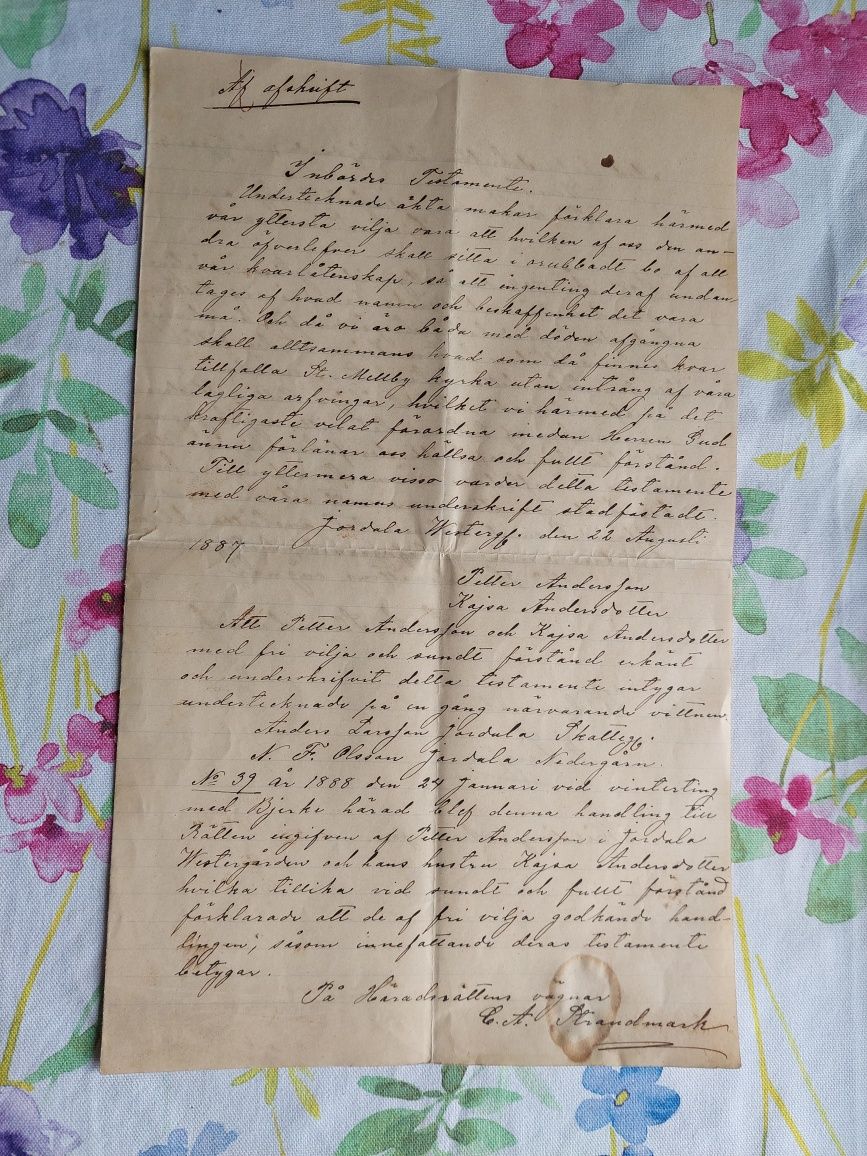 Af afskrift
Inbördes Testamente.
Undertecknade äkta makar förklara härmed
vår yttersta vilja vara att hvilken af oss den an-
dra öfverlefver skall sitta i orubbadt bo af all
vår kvarlåtenskap, så att ingenting deraf undan
tages af hvad namn och beskaffenhet det vara
må. Och då vi äro båda med döden afgångna
skall alltsammans hvad som då finnes kvar
tillfalla St. Mellby kyrka utan intrång af våra
lagliga arfvingar, hvilket vi härmed på det
kraftigaste velat förordna medan Herren Gud
ännu förlänar oss hällsa och fullt förstånd.
Till yttermera visso varder detta testamente
med våra namns underskrift stadfästadt.
Jordala Westergg. den 22 Augusti
1887
Petter Andersson
Kajsa Andersdotter
Att Petter Andersson och Kajsa Andersdotter
med fri vilja och sundt förstånd erkänt
och underskrifvit detta testamente intygar
undertecknade på en gång närvarande vittnen.
Anders Larsson Jordala Skattegg.
N. F. Olsson Jordala Nedergårn.
No 39 År 1888 den 24 Januari vid vinterting
med Bjerke härad blef denna handling till
Rätten ingifven af Petter Andersson i Jordala
Westergården och hans hustru Kajsa Andersdotter
hvilka tillika vid sundt och fullt förstånd
förklarade att de af fri vilja godkände hand-
lingen, såsom innefattande deras testamente
betygar.
På Häradsrättens vägnar
C. A. Strandmark